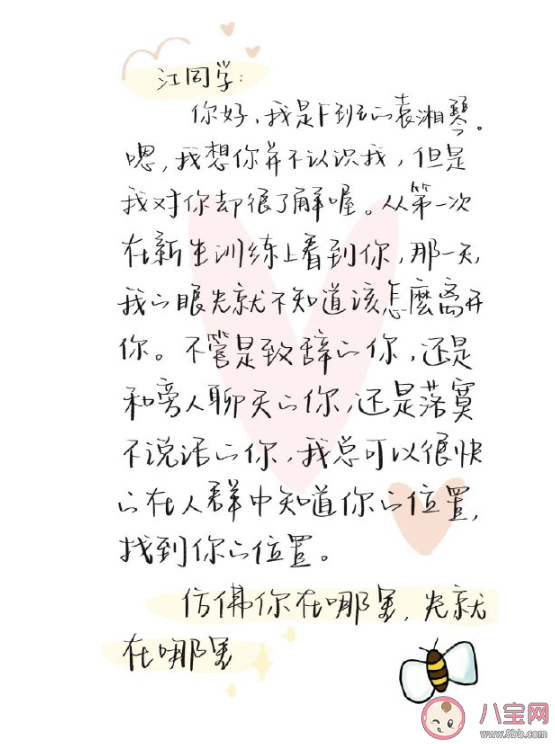 江同学:
你好,我是F班的袁湘琴。
嗯,我想你并不认识我,但是
我对你却很了解喔。从第一次
在新生训练上看到你,那一天,
我的眼光就不知道该怎麼离开
你。不管是致辞的你,还是
和旁人聊天的你,还是落寞
不说话的你,我总可以很快
的在人群中知道你的位置,
找到你的位置。
仿佛你在哪里,光就
在哪里
八宝网
www.8bb.com